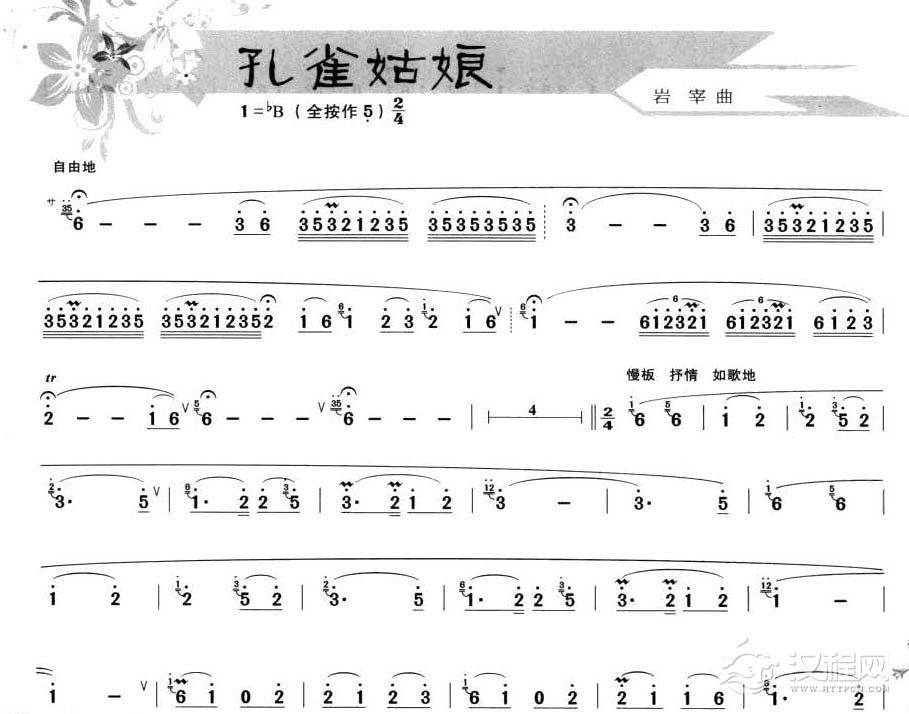 孔雀姑娘
岩 宰 曲
1=♭B（全按作5̣）2/4
自由地
サ 35 6 - - - 3 6 35321235 35353535 3 - - 3 6 | 35321235 |
35321235 35321235 2 1 6 6 1 2 3 1 2 1 6 ∨ 6 1 - - 6 612321 6 612321 6123 |
tr
慢板 抒情 如歌地
2 - - 1 6 ∨ 5 6 - - - ∨ 35 6 - - - | 4 ‖ 2/4 1 6 5 6 | 1 2 | 1 2 3 5 2 |
2 3· 5 ∨ | 6 1· 2 2 3 5 | 3· 2 1 2 | 12 3 - | 3· 5 | 1 6 5 6 |
1 2 | 1 2 3 5 2 | 2 3· 5 | 6 1· 2 2 3 5 | 3· 2 1 2 | 12 1 - |
1 - ∨ | 1 6 1 0 2 | 2 1 2 3 | 1 6 1 0 2 | 2 1 1 6 | 6 1· 2 |
汉程网
WWW.HTTPCN.COM